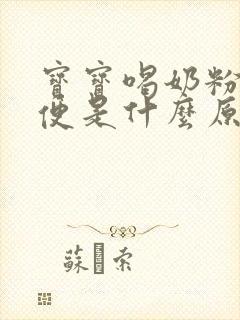 寶寶喝奶粉
便是什麼原
蘇 索